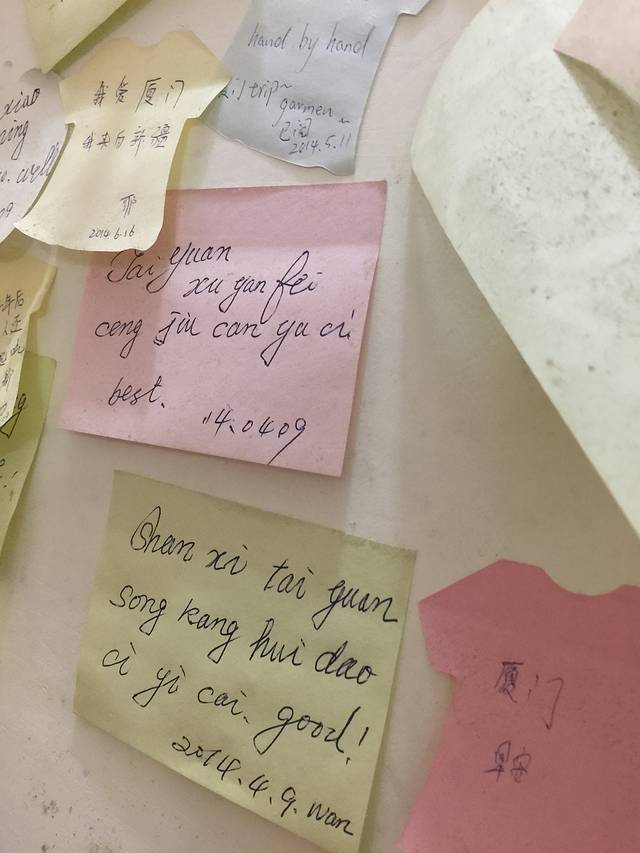 hand by hand
trip~
garmen~
2014.5.11
我爱厦门
我来自新疆
2014.6.16
xiao
Tai yuan
xu yan fei
ceng jiu can yu ci
best.
14.04.09
Shan xi tai yuan
song kang hui dao
ci yi cai. good!
2014.4.9. wan
厦门
早安